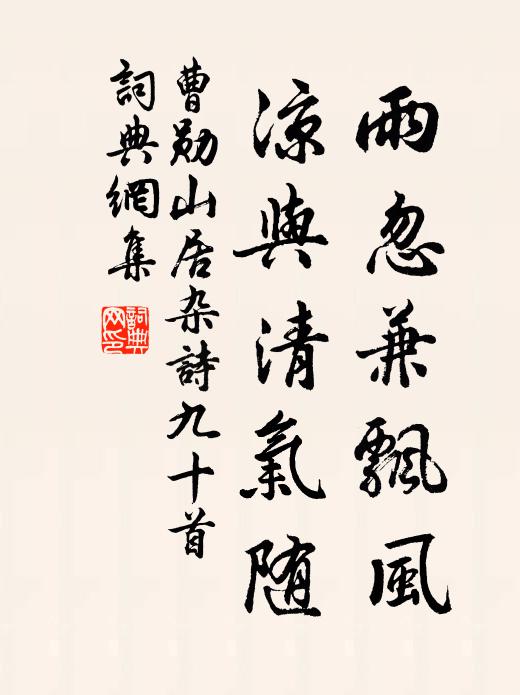 雨忽兼飄風
涼與清氣随
曹勛山居杂詩九十首
詞典網集
詞典网印